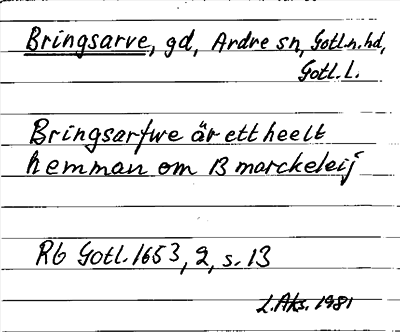 Bringsarve, gd, Ardre sn, Gotl.n.hd,
Gotl.l.
Bringsarfwe är ett heelt
hemman om 13 marckeleij
Rb Gotl. 1653, 2, s. 13
L.Aks. 1981